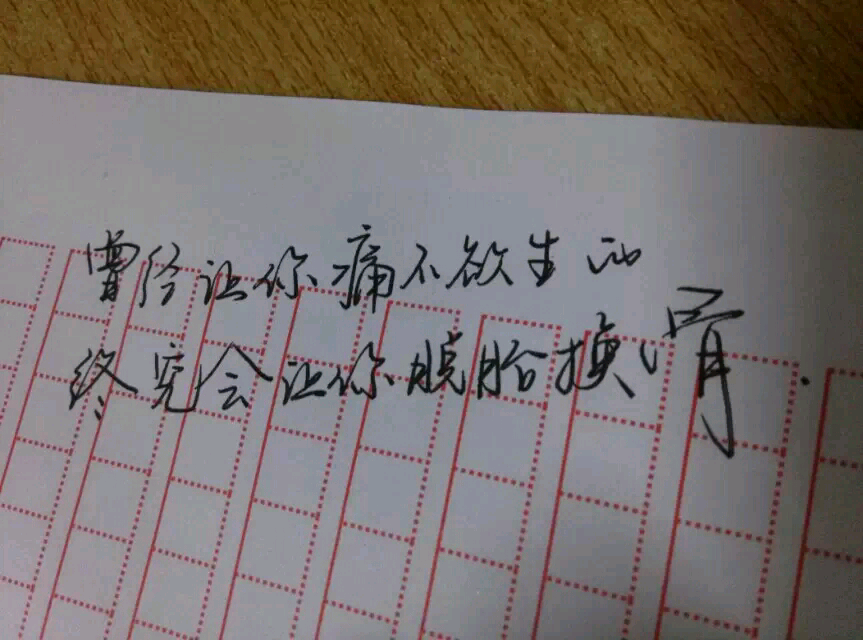 曾经让你痛不欲生的
终究会让你脱胎换骨.